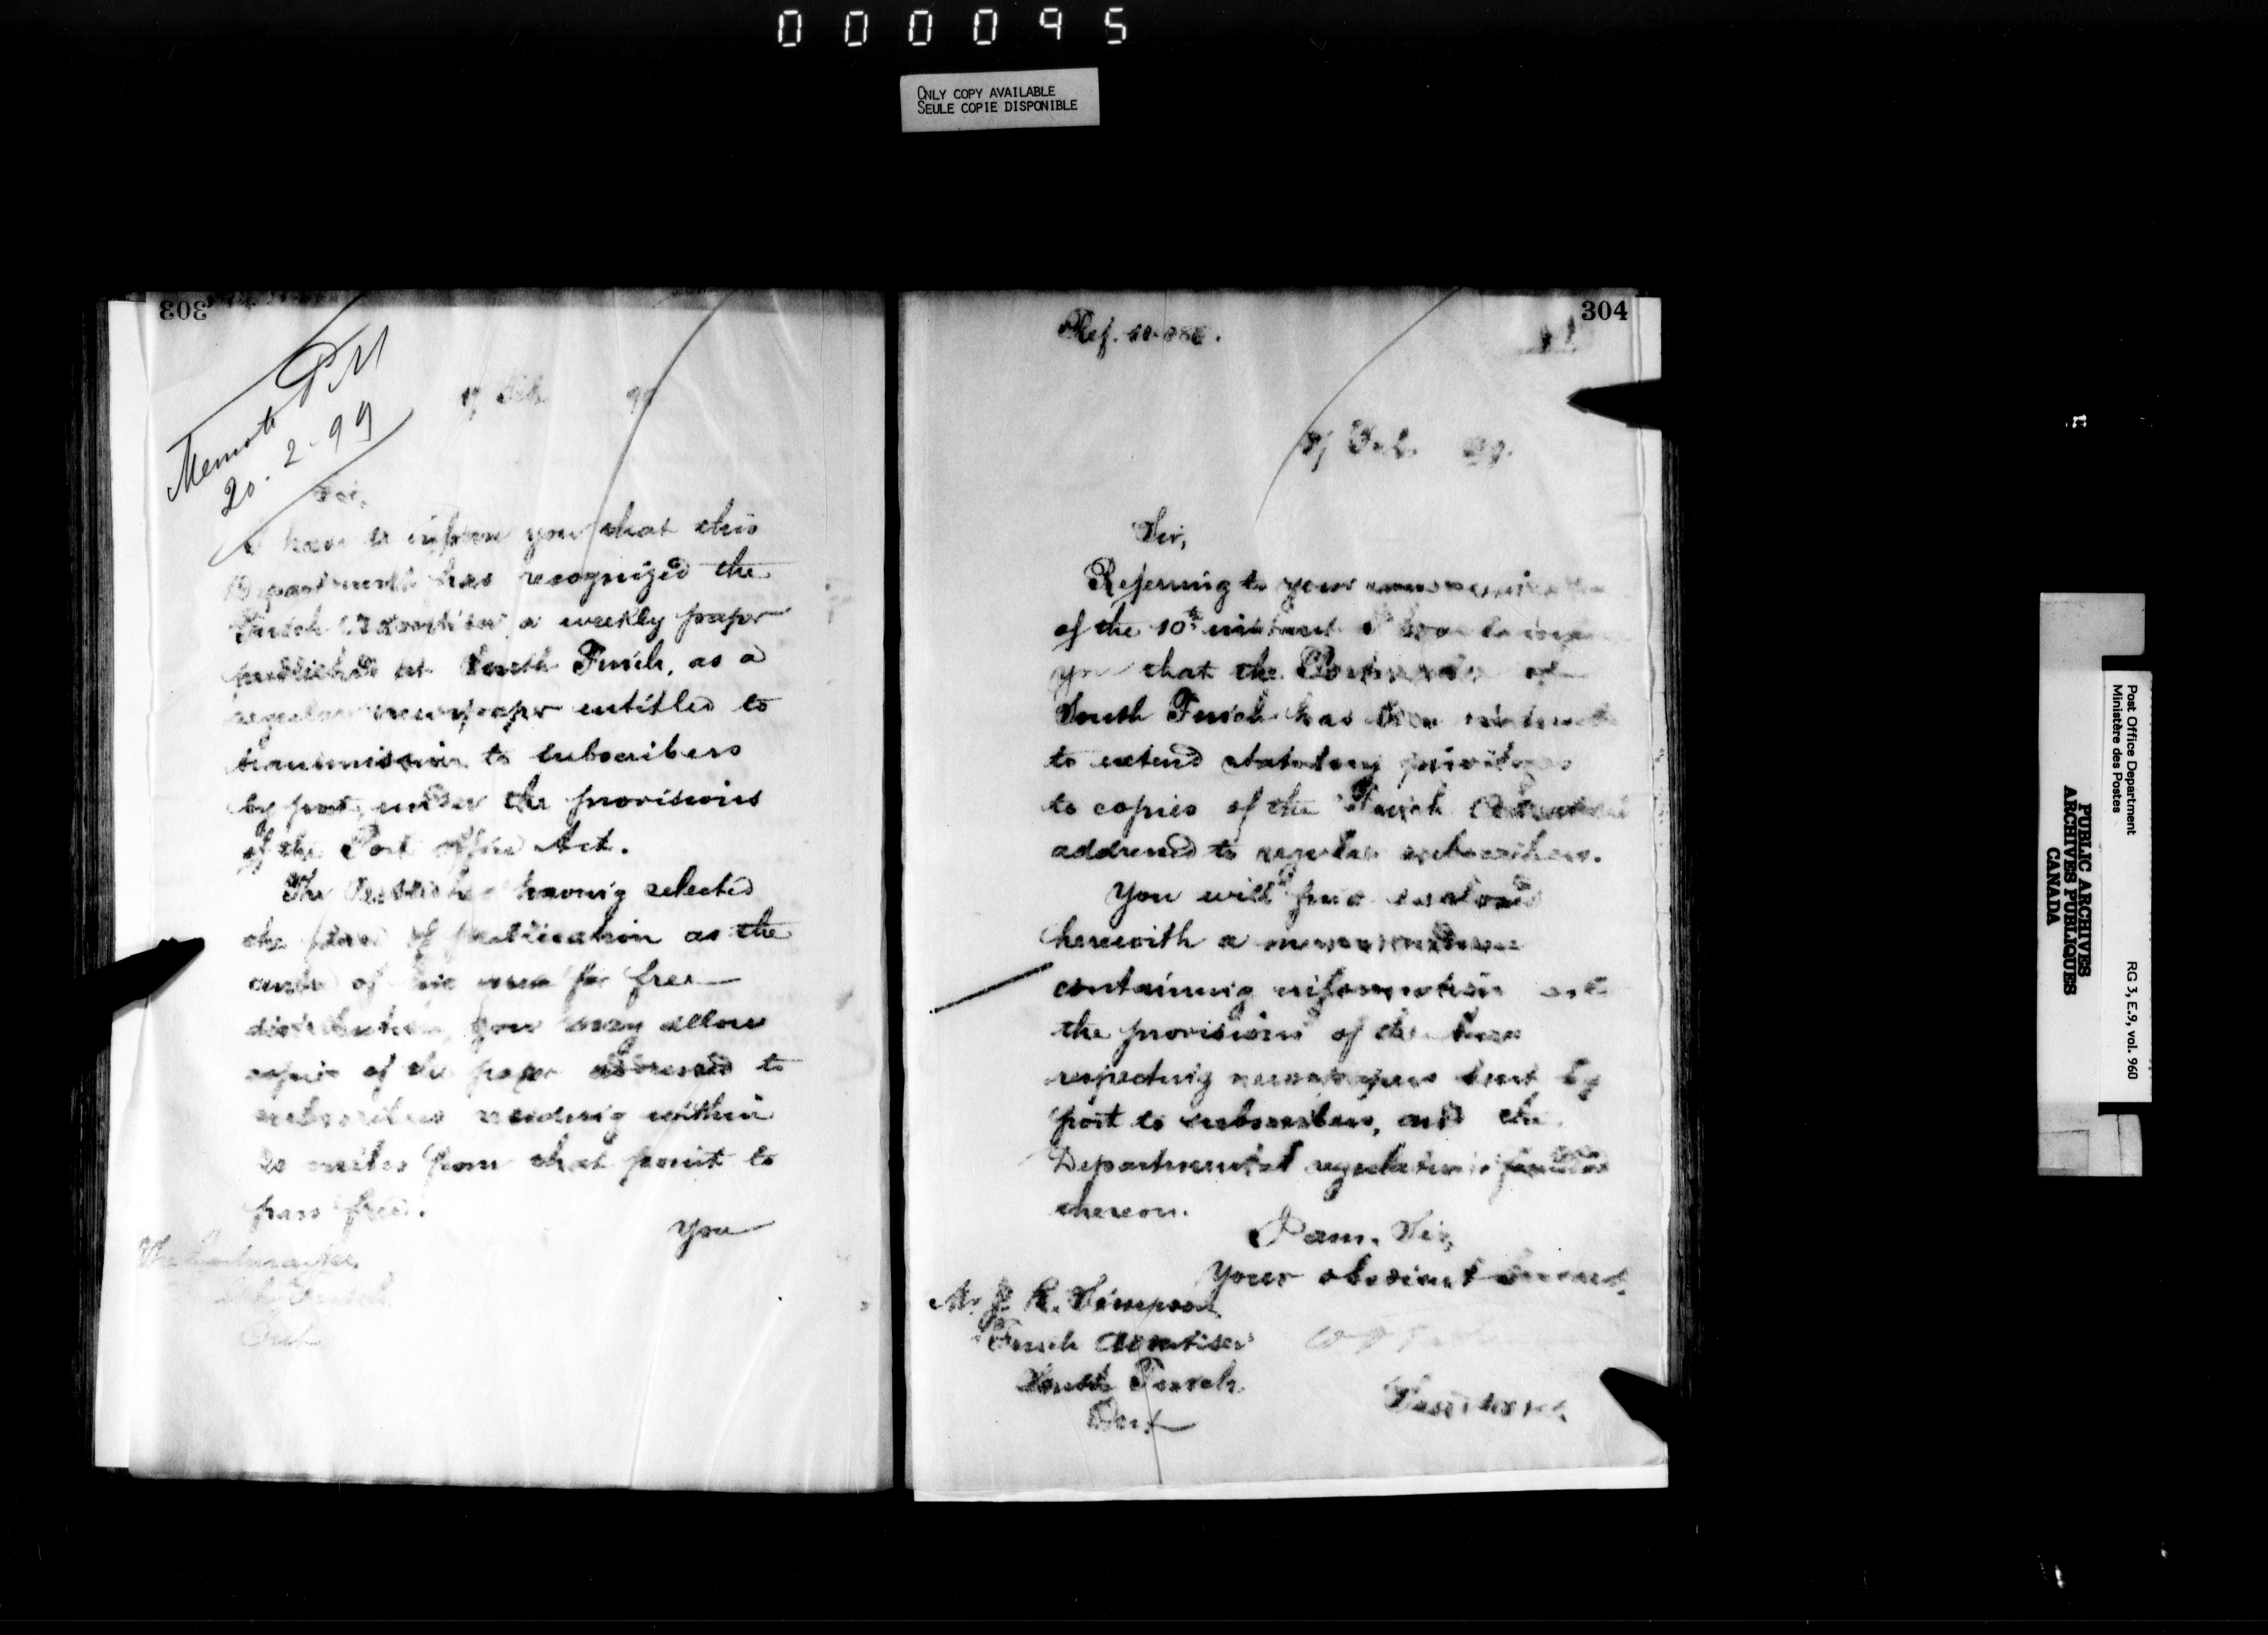 000095
ONLY COPY AVAILABLE
SEULE COPIE DISPONIBLE
303
Memo to PM
20-2-99
17 Feb 99
Sir,
I have to inform you that this
Department has recognized the
Finch Advertiser a weekly paper
published at South Finch, as a
regular newspaper entitled to
transmission to subscribers
by post, under the provisions
of the Post Office Act.
The Publisher having selected
the place of publication as the
centre of his area for free
distribution, you may allow
copies of the paper addressed to
subscribers residing within
miles from that point to
pass free.
You
The Postmaster
South Finch
Ont
304
Ref.
17 Feb. 99.
Sir,
Referring to your communication
of the 10th instant I have to inform
you that the Postmaster of
South Finch has been instructed
to extend statutory privileges
to copies of the Finch Advertiser
addressed to regular subscribers.
You will find enclosed
herewith a memorandum
containing information as to
the provisions of the Law
respecting newspapers sent by
post to subscribers, and the
Departmental regulations founded
thereon.
I am, Sir,
Your obedient Servant,
Mr. J. R. Simpson
Finch Advertiser
South Finch
Ont
Post Office Department
Ministère des Postes
RG 3, E.9, vol. 960
PUBLIC ARCHIVES
ARCHIVES PUBLIQUES
CANADA